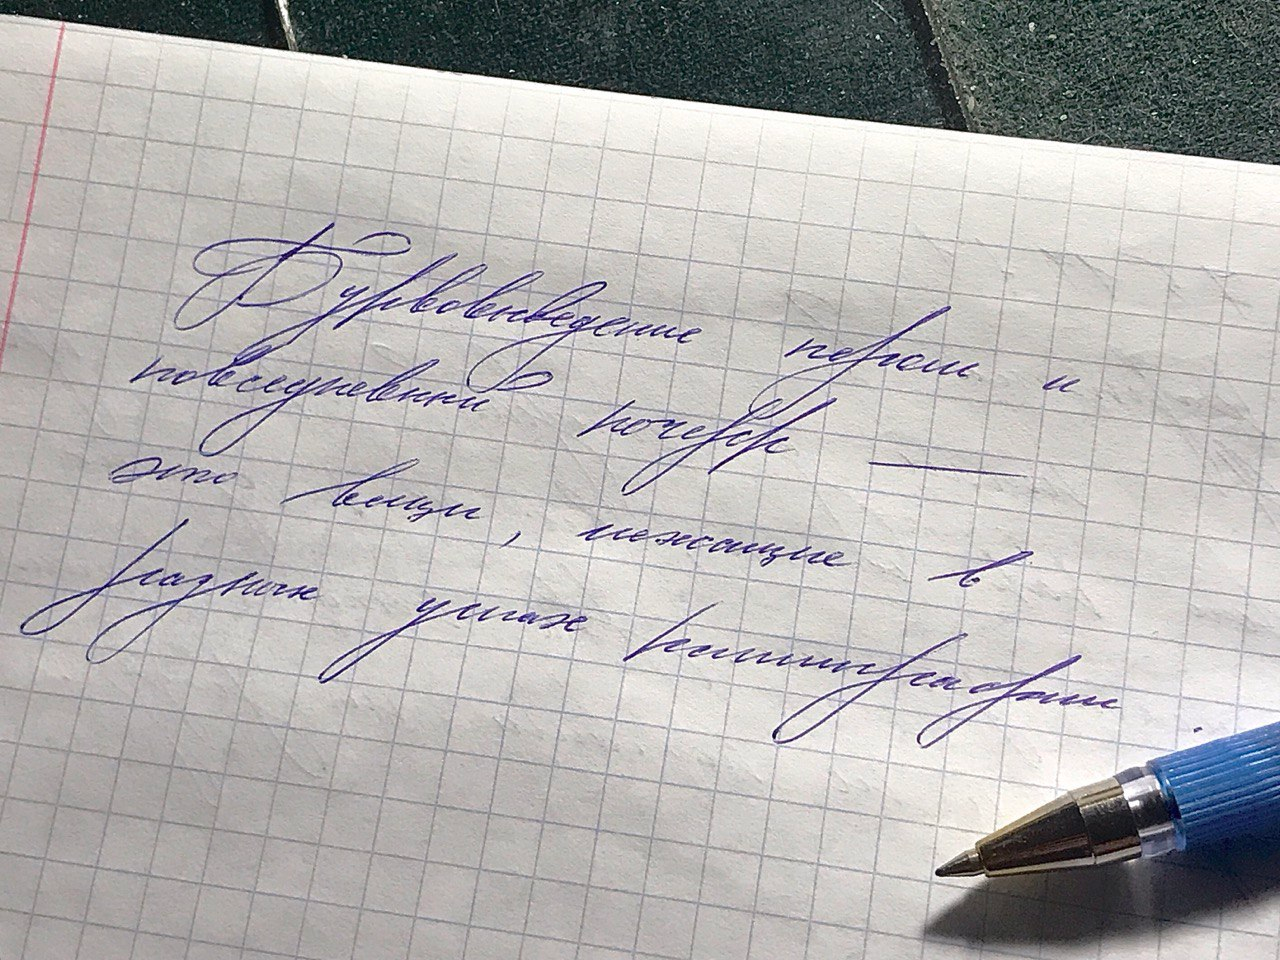 Буквовыведение пером и
повседневный почерк —
это вещи, лежащие в
разных углах каллиграфии.